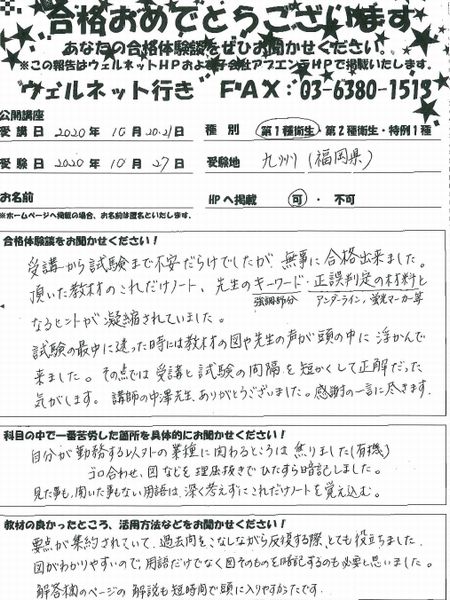 合格おめでとうございます
あなたの合格体験談をぜひお聞かせください。
※この報告はウェルネットHPおよび子会社アプエンテHPで掲載いたします。
ウェルネット行き FAX:03-6380-1513
公開講座
受講日 2020年 10月 20.21日 種別 第1種衛生・第2種衛生・特例1種
受験日 2020年 10月 27日 受験地 九州(福岡県)
お名前 HPへ掲載 可・不可
※ホームページへ掲載の場合、お名前は匿名といたします。
合格体験談をお聞かせください!
受講から試験まで不安だらけでしたが、無事に合格出来ました。
頂いた教材のこれだけノート、先生のキーワード・正誤判定の材料と
強調部分 アンダーライン、蛍光マーカー等
なるヒントが凝縮されていました。
試験の最中に迷った時には教材の図や先生の声が頭の中に浮かんで
来ました。その点では受講と試験の間隔を短かくして正解だった
気がします。講師の中澤先生、ありがとうございました。感謝の一言に尽きます.
科目の中で一番苦労した箇所を具体的にお聞かせください!
自分が勤務する以外の業種に関わるところは焦りました(有機)
ゴロ合わせ、図などを理屈抜きでひたすら暗記しました。
見た事も、聞いた事もない用語は、深く考えずにこれだけノートを覚え込む。
教材の良かったところ、活用方法などをお聞かせください!
要点が集約されていて、過去問をこなしながら反復する際、とても役立ちました.
図がわかりやすいので、用語だけでなく図そのものを暗記するのも必要と思いました。
解答欄のページの解説も短時間で頭に入りやすかったです.